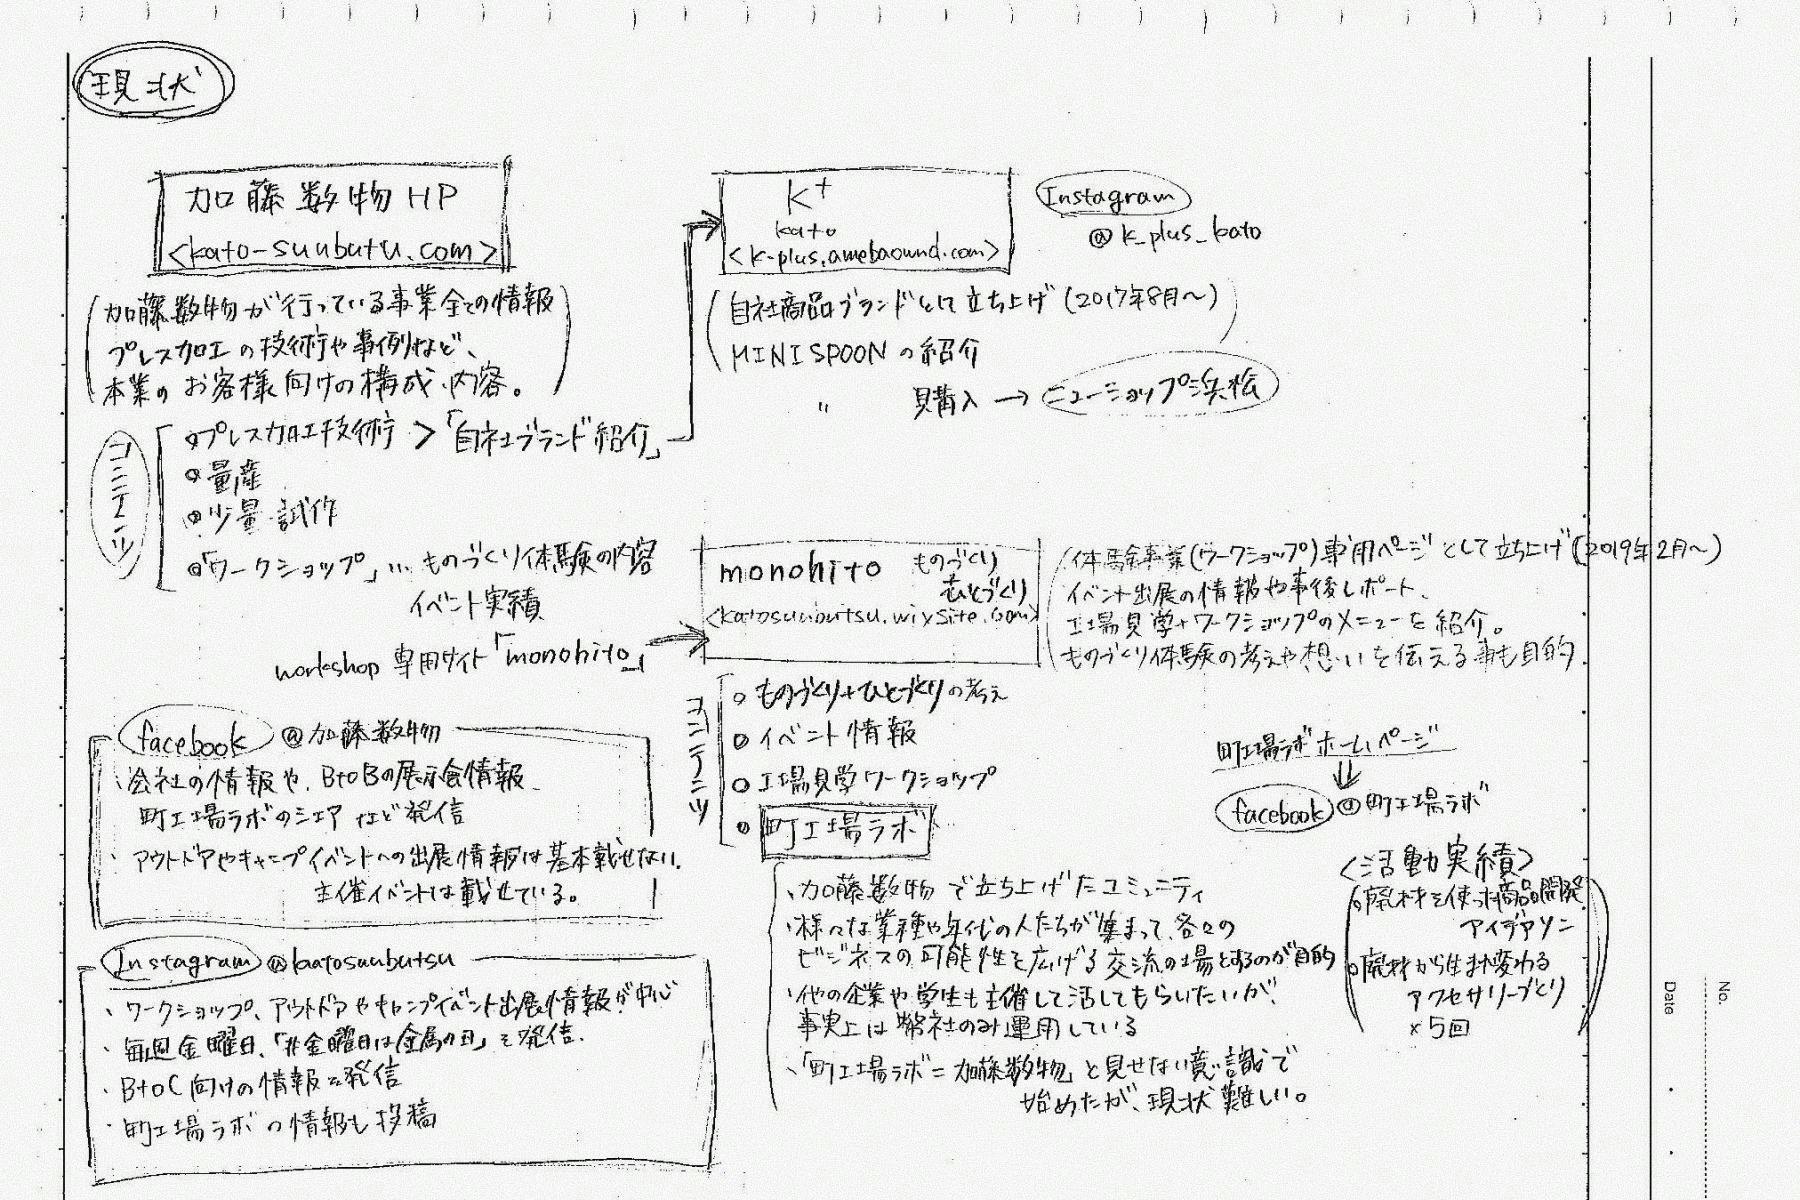 現状
加藤数物HP
<kato-suubutu.com>
(加藤数物が行っている事業全ての情報
プレス加工の技術や事例など、
本業のお客様向けの構成・内容。)
コンテンツ
○プレス加工技術 > 「自社ブランド紹介」
○量産
○少量・試作
○「ワークショップ」…ものづくり体験の内容
イベント実績
workshop 専用サイト「monohito」
K+
kato
<k-plus.amebaownd.com>
Instagram
@k_plus_kato
(自社商品ブランドとして立ち上げ(2017年8月〜)
MINI SPOONの紹介)
〃 購入 → ニューショップ浜松
monohito ものづくり
ひとづくり
<katosuubutsu.wixsite.com>
(体験事業(ワークショップ)専用ページとして立ち上げ(2019年2月〜)
イベント出展の情報や事後レポート、
工場見学+ワークショップのメニューを紹介。
ものづくり体験の考えや想いを伝える事も目的
コンテンツ
○ものづくり+ひとづくりの考え
○イベント情報
○工場見学ワークショップ
○町工場ラボ
・加藤数物で立ち上げたコミュニティ
・様々な業種や年代の人たちが集まって、各々の
ビジネスの可能性を広げる交流の場とするのが目的
・他の企業や学生も主催して活してもらいたいが、
事実上は弊社のみ運用している
・「町工場ラボ=加藤数物」と見せない意識で
始めたが、現状難しい。
町工場ラボホームページ
⇓
facebook @町工場ラボ
<活動実績>
(○廃材を使った商品開発
アイデアソン
○廃材から生まれ変わる
アクセサリーづくり
×5回)
facebook @加藤数物
・会社の情報や、BtoBの展示会情報、
町工場ラボのシェアなど発信
・アウトドアやキャンプイベントへの出展情報は基本載せない。
主催イベントは載せている。
Instagram @katosuubutsu
・ワークショップ、アウトドアやキャンプイベント出展情報が中心
・毎週金曜日、「#金曜日は金属の日」を発信。
・BtoC向けの情報を発信
・町工場ラボの情報も投稿
No.
Date